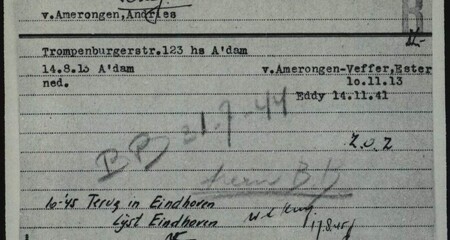 v.Amerongen,Andries
B
Trompenburgerstr.123 hs A'dam
14.8.13 A'dam v.Amerongen-Veffer,Ester
ned. 10.11.13
Eddy 14.11.41
BB 31-7-44
Z.O.Z
10-'45 Terug in Eindhoven
Lijst Eindhoven 17.8.45